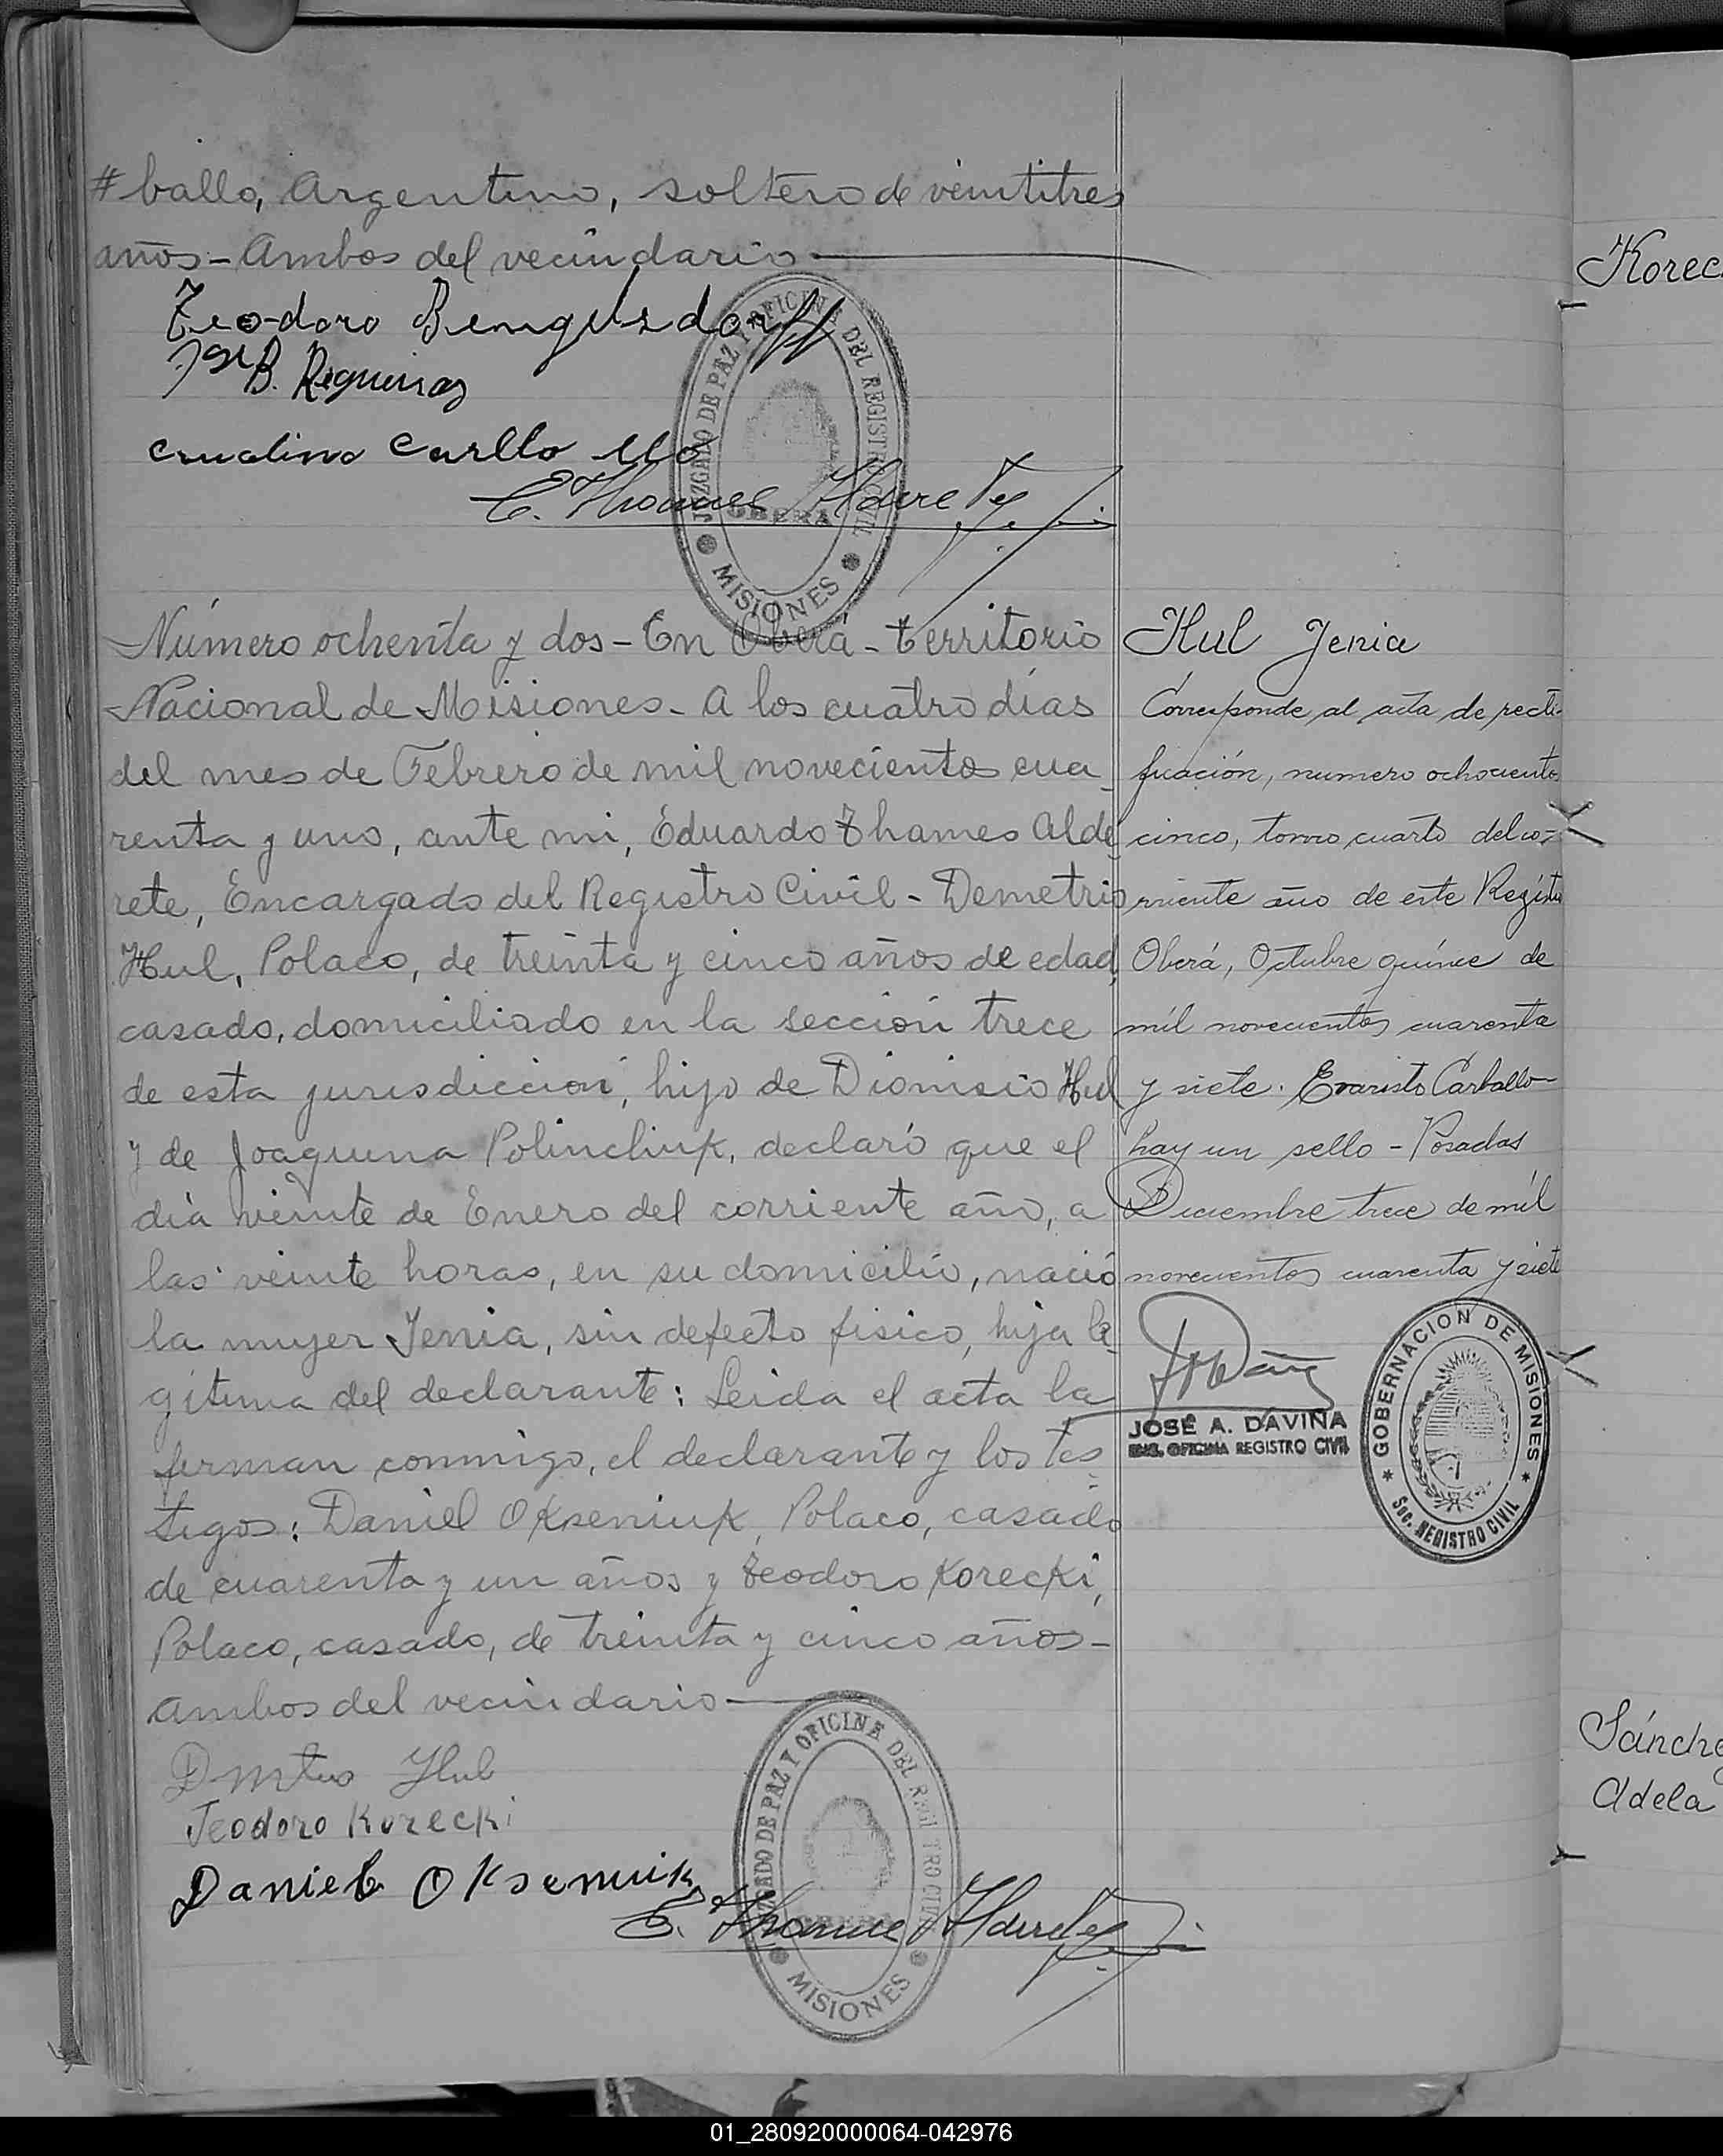 #ballo, Argentino, soltero de veintitres
años - Ambos del vecindario
Teodoro
B. Regueiras
E. Thames Alderete
JUZGADO DE PAZ Y OFICINA DEL REGISTRO CIVIL
OBERA
MISIONES
Número ochenta y dos - En Oberá - territorio
Nacional de Misiones - A los cuatro días
del mes de Febrero de mil novecientos cua
renta y uno, ante mi, Eduardo Thames Alde
rete, Encargado del Registro Civil - Demetrio
Hul, Polaco, de treinta y cinco años de edad,
casado, domiciliado en la sección trece
de esta jurisdiccion, hijo de Dionisio Hul
y de Joaquina Polinchuk, declaró que el
día veinte de Enero del corriente año, a
las veinte horas, en su domicilio, nació
la mujer Jenia, sin defecto fisico, hija le
gitima del declarante: Leida el acta la
firman conmigo, el declarante y los tes
tigos: Daniel Okseniuk, Polaco, casado
de cuarenta y un años y Teodoro Korecki,
Polaco, casado, de treinta y cinco años -
Ambos del vecindario
Hul
Teodoro Korecki
Daniel Okseniuk
E. Thames Alderete
JUZGADO DE PAZ Y OFICINA DEL REGISTRO CIVIL
OBERA
MISIONES
Hul Jenia
Corresponde al acta de recti-
ficación, numero ochocientos
cinco, tomo cuarto del co-
rriente año de este Registro
Oberá, Octubre quince de
mil novecientos cuarenta
y siete. Evaristo Carballo
hay un sello - Posadas
Diciembre trece de mil
novecientos cuarenta y siete
JOSÉ A. DAVIÑA
ENC. OFICINA REGISTRO CIVIL
GOBERNACION DE MISIONES
Sec. REGISTRO CIVIL
Korec
Sánche
Adela
01_280920000064-042976